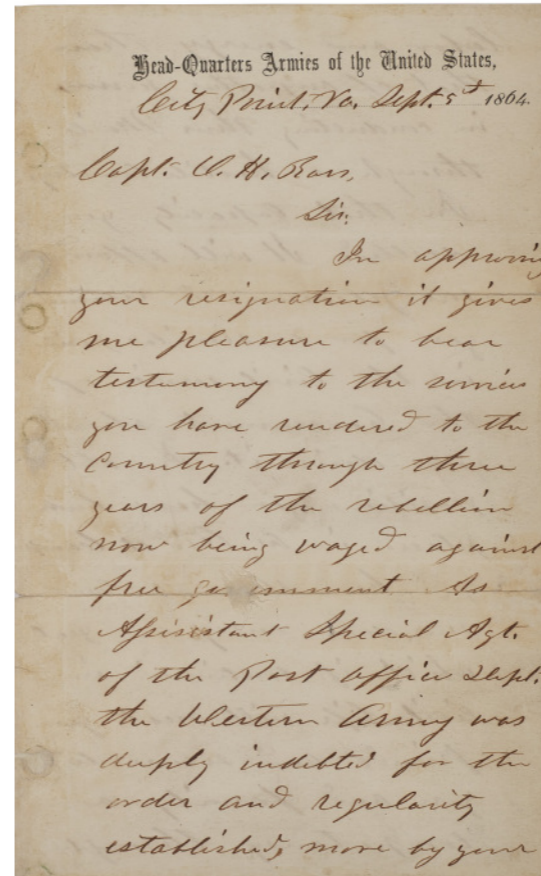 Head-Quarters Armies of the United States,
City Point, Va. Sept. 5th 1864.
Capt. C. H. Ross,
Sir:
In approving
your resignation it gives
me pleasure to bear
testamony to the services
you have rendered to the
country through three
years of the rebellion
now being waged against
free government. As
Assisistant Special Agt.
of the Post office Dept.
the Western Army was
deeply indebted for the
order and regularity
established, more by your